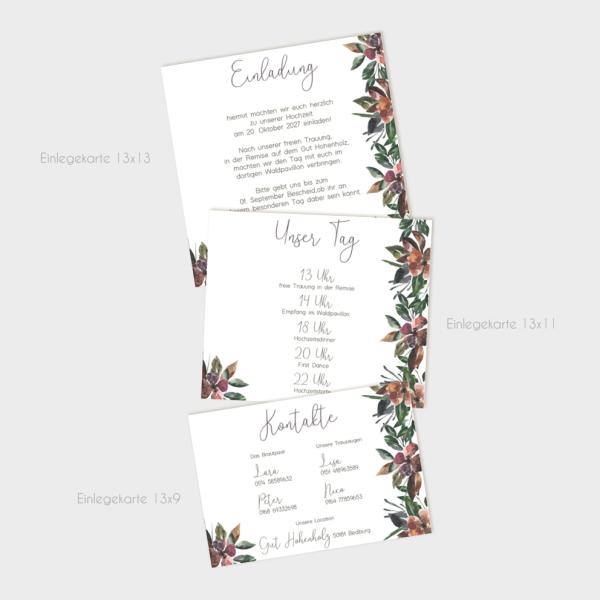 Einladung
hiermit möchten wir euch herzlich
zu unserer Hochzeit
am 20. Oktober 2027 einladen!
Nach unserer freien Trauung,
in der Remise auf dem Gut Hohenholz,
möchten wir den Tag mit euch im
dortigen Waldpavillon verbringen.
Bitte gebt uns bis zum
01. September Bescheid,ob ihr an
besonderen Tag dabei sein könnt.
Einlegekarte 13x13
Unser Tag
13 Uhr
freie Trauung in der Remise
14 Uhr
Empfang im Waldpavillon
18 Uhr
Hochzeitsdinner
20 Uhr
First Dance
22 Uhr
Einlegekarte 13x11
Kontakte
Das Brautpaar
Lara
0174 58589632
Peter
0168 69332698
Unsere Trauzeugen
Lisa
0151 48963589
Nico
0164 77859653
Unsere Location
Gut Hohenholz 50181 Bedburg
Einlegekarte 13x9